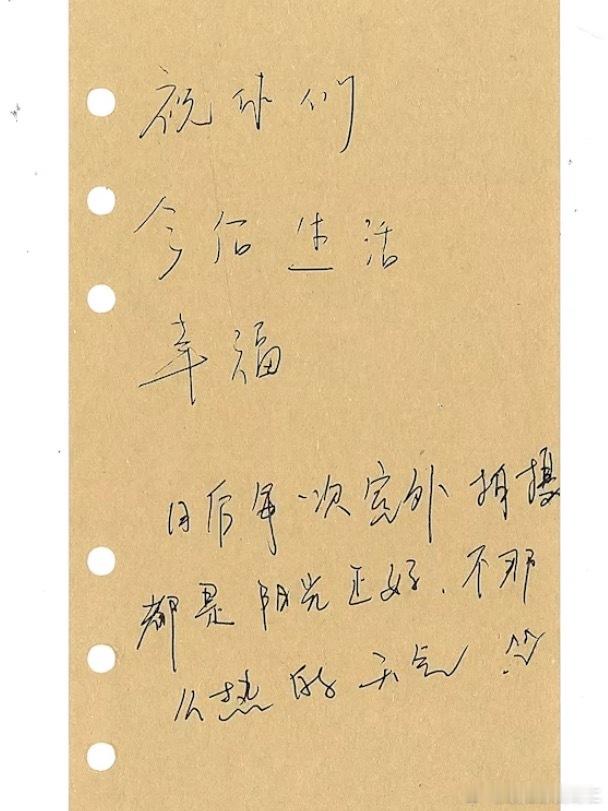 祝你们
今后生活
幸福
日后每一次室外拍摄
都是阳光正好、不那
么热的天气